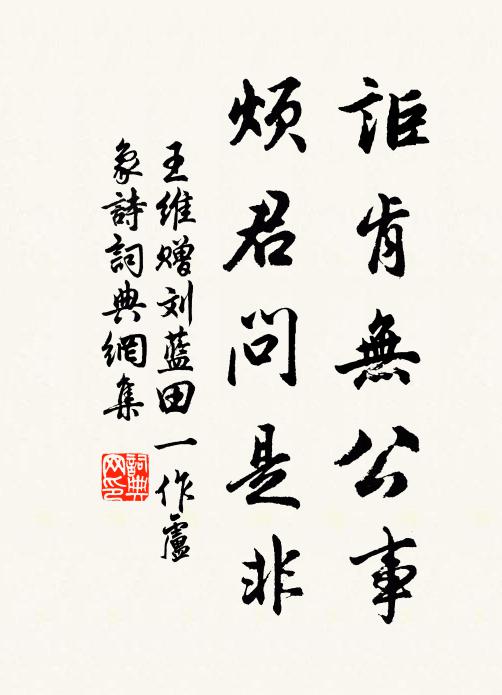 詎肯無公事
煩君問是非
王維赠刘藍田一作盧
象詩詞典網集
詞典
网印